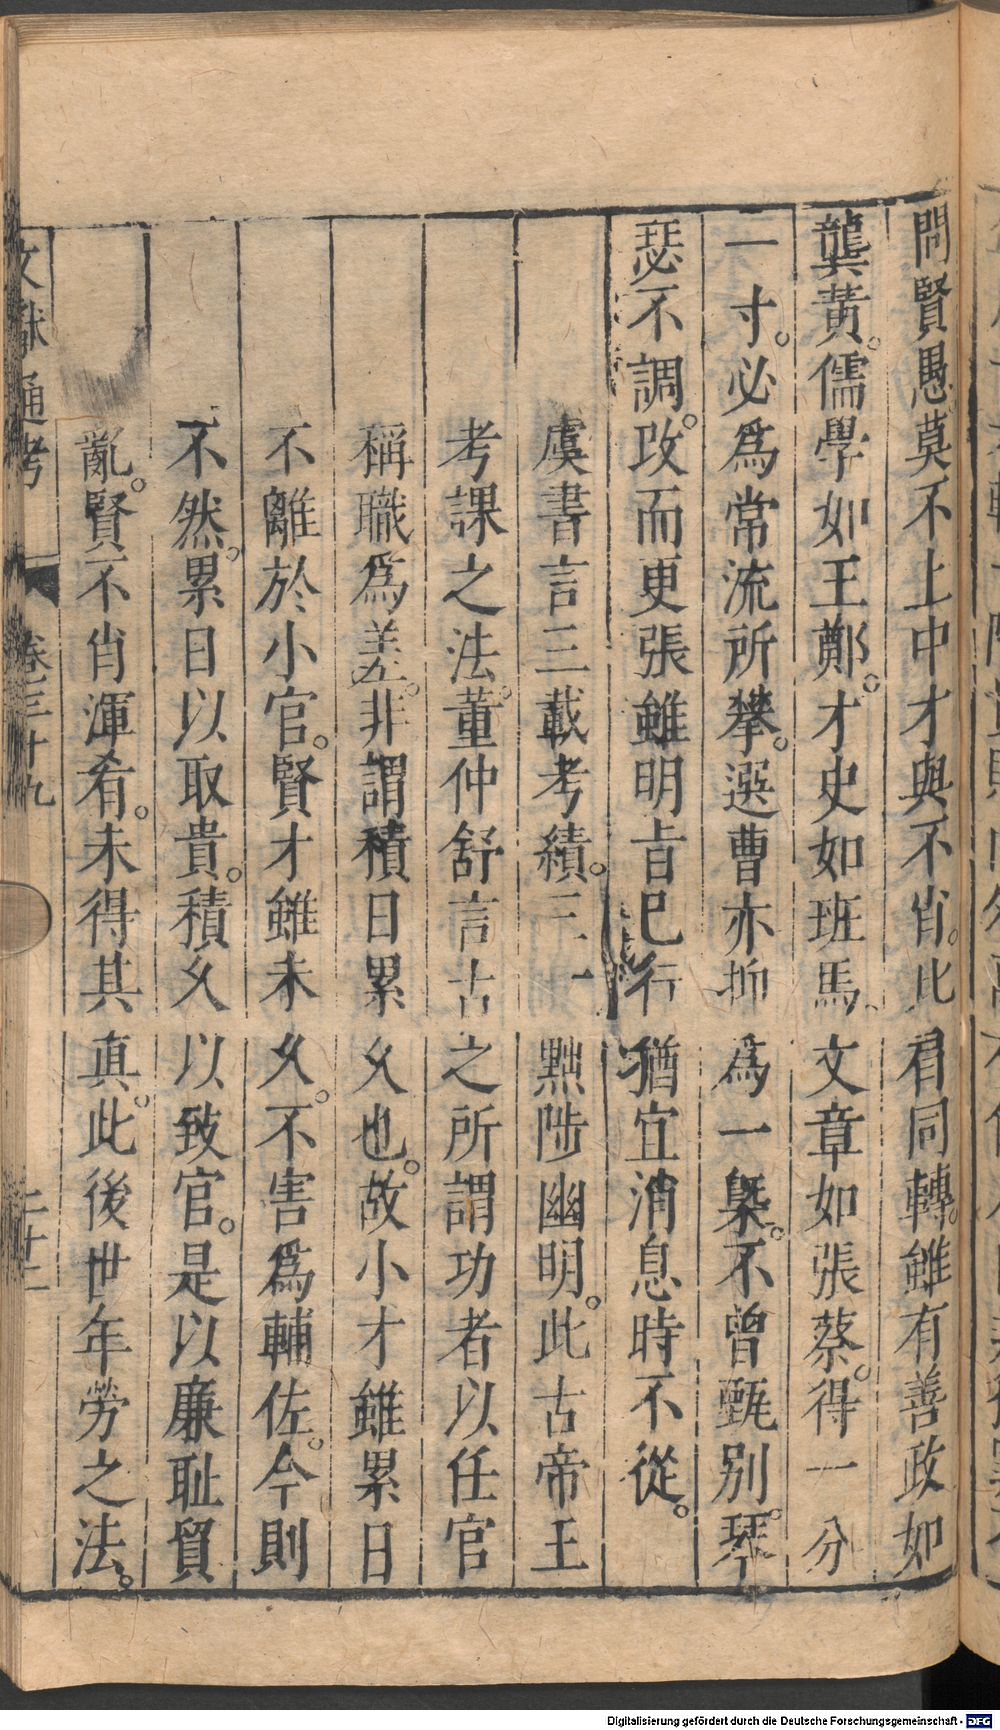 問賢愚莫不上中才與不肖。比肩同轉。雖有善政如
龔黃。儒學如王鄭。才史如班馬。文章如張蔡。得一分
一寸。必爲常流所攀。選曹亦抑爲一槩。不曾甄別。琴
瑟不調。攻而更張雖明旨已行猶宜消息時不從。
虞書言三載考績。三　黜陟幽明。此古帝王
考課之法。董仲舒言古之所謂功者以任官
稱職爲差。非謂積日累久也。故小才雖累日
不離於小官。賢才雖未久。不害爲輔佐。今則
不然。累日以取貴。積久以致官。是以廉耻貿
亂。賢不肖渾肴。未得其真。此後世年勞之法。
文獻通考　卷三十九　二十二
Digitalisierung gefördert durch die Deutsche Forschungsgemeinschaft - DFG